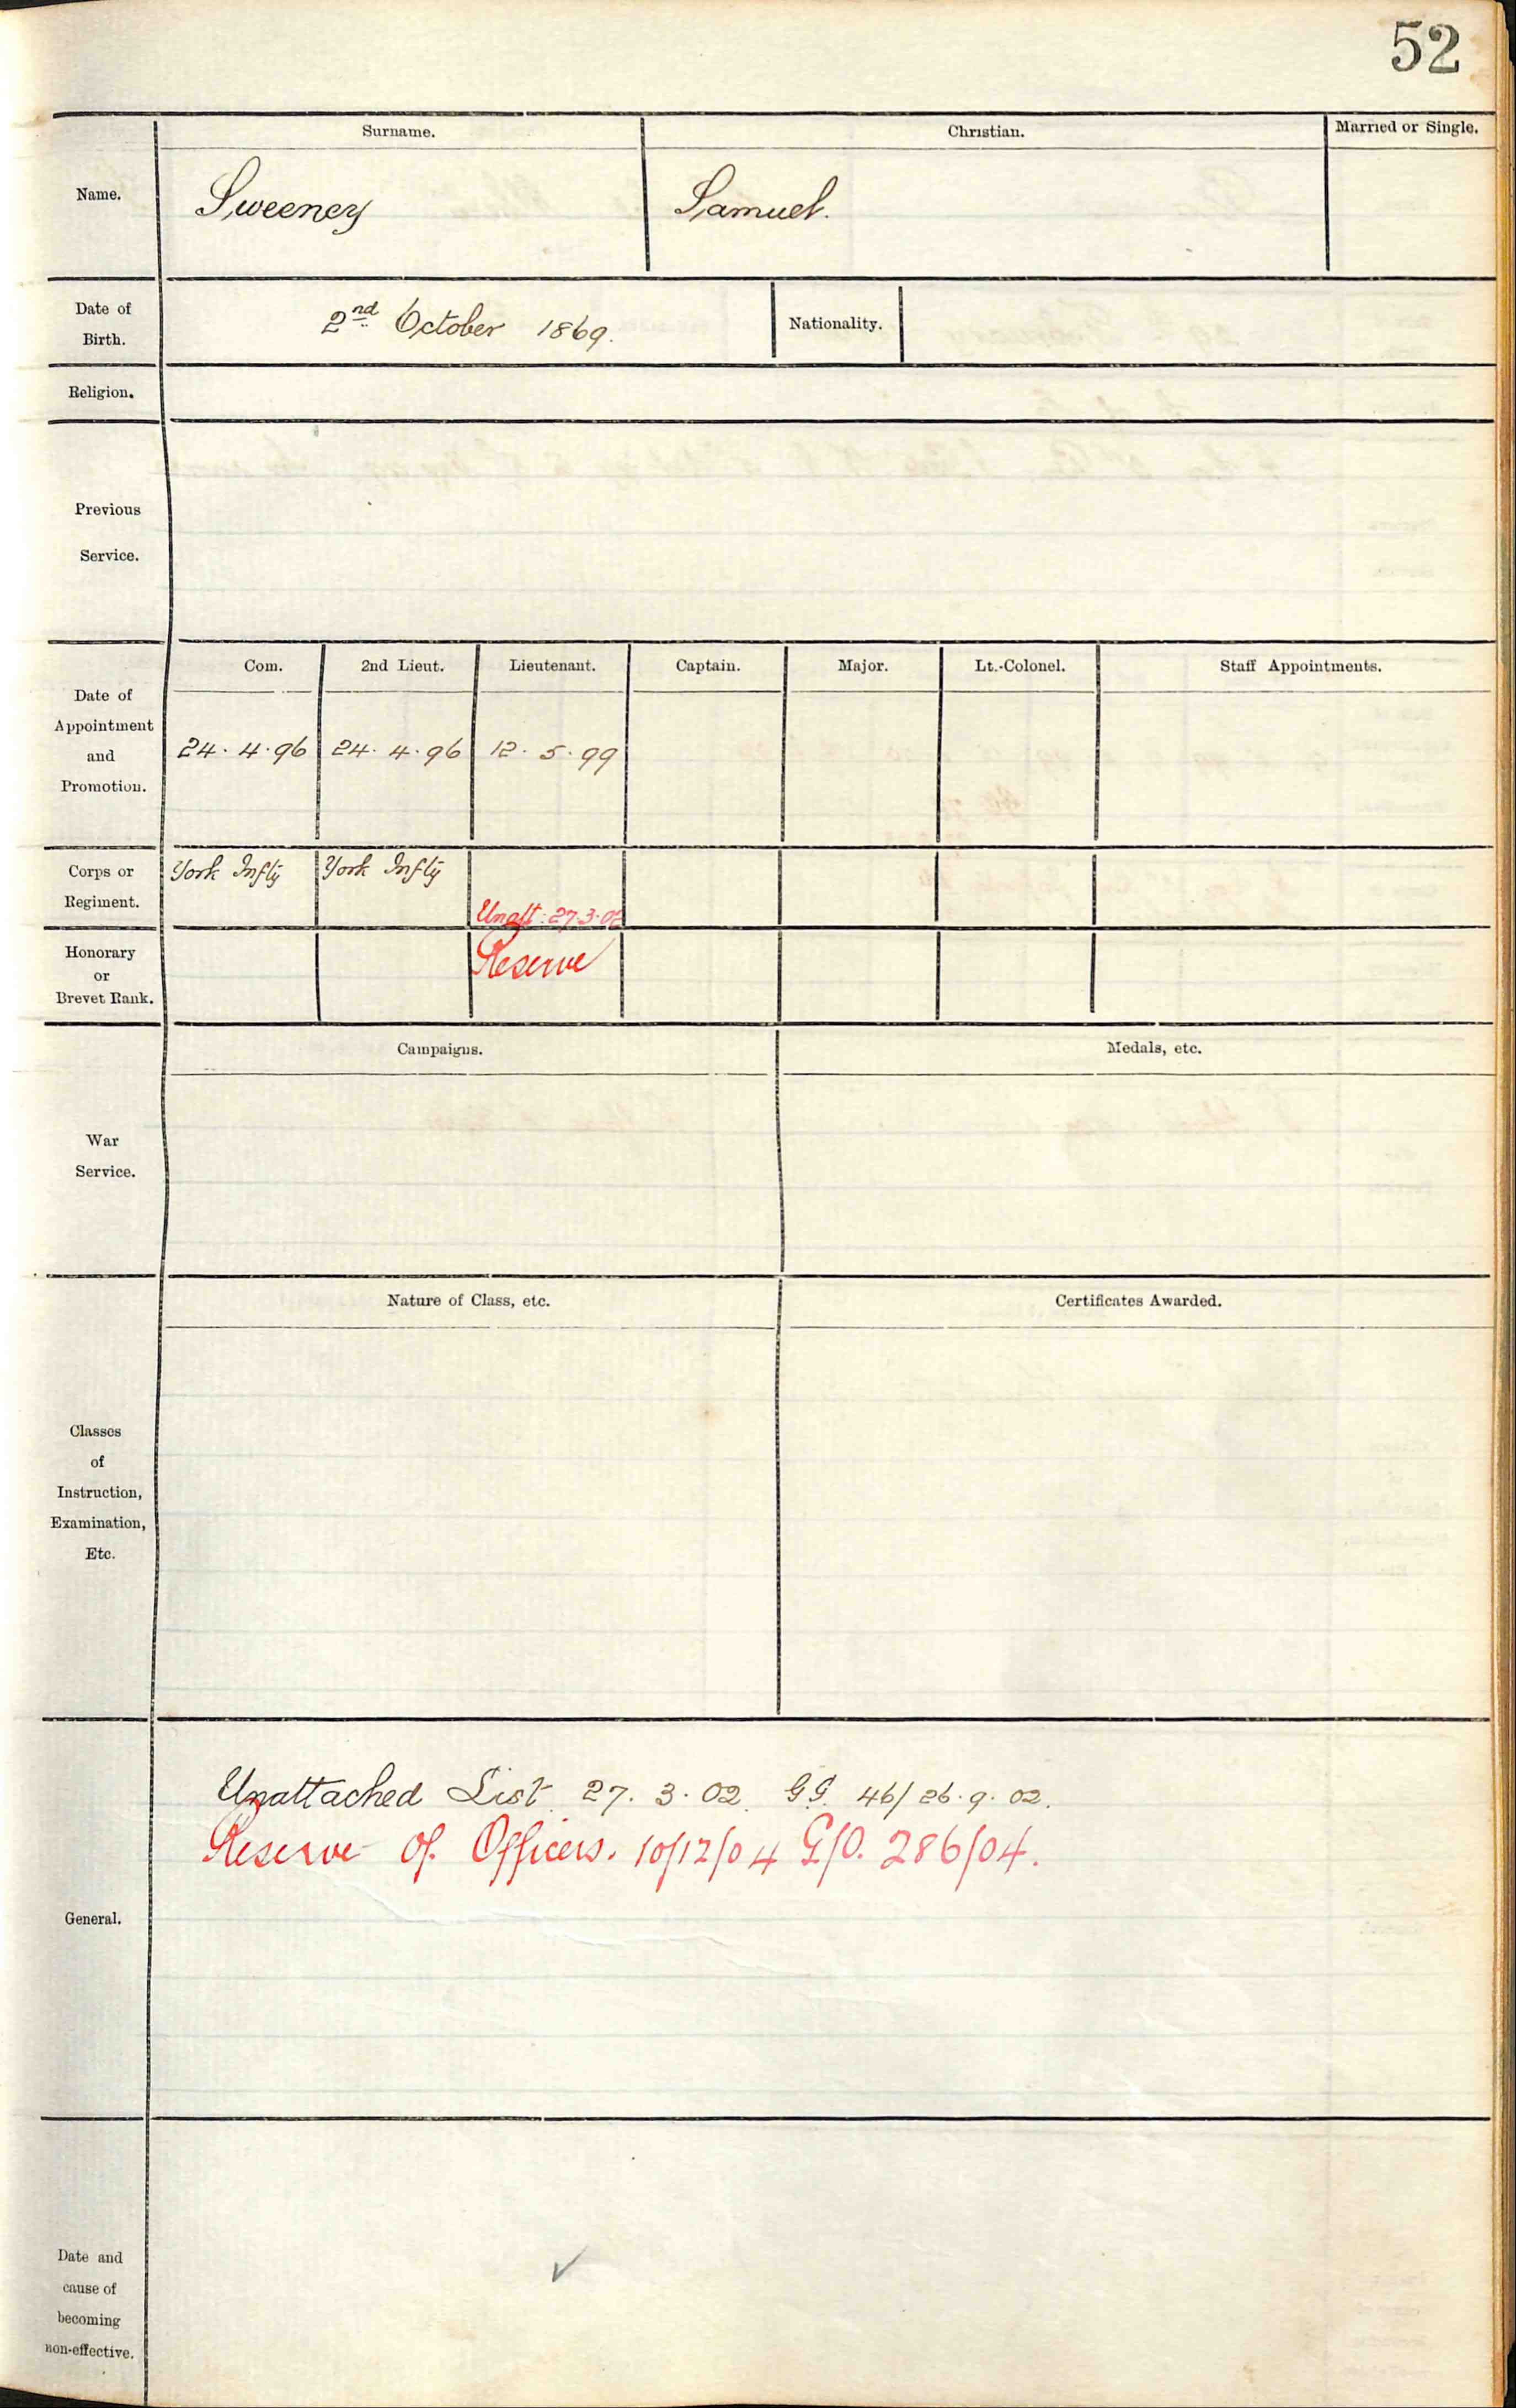 52
Surname. Christian. Married or Single.
Name. Sweeney Samuel.
Date of Birth. 2nd October 1869. Nationality.
Religion.
Previous Service.
Com. 2nd Lieut. Lieutenant. Captain. Major. Lt.-Colonel. Staff Appointments.
Date of Appointment and Promotion. 24. 4. 96 24. 4. 96 12. 5. 99
Corps or Regiment. York Infty York Infty Unatt: 27.3.02
Honorary or Brevet Rank. Reserve
Campaigns. Medals, etc.
War Service.
Nature of Class, etc. Certificates Awarded.
Classes of Instruction, Examination, Etc.
Unattached List 27. 3. 02. G.G. 46/26.9.02.
Reserve of Officers. 10/12/04 G/O. 286/04.
General.
Date and cause of becoming non-effective.